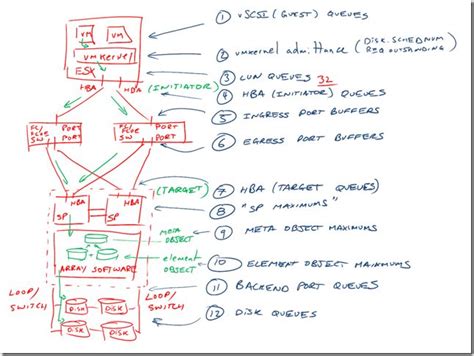 ① vSCSI (GUEST) QUEUES
VM VM
vmkernel
ESX
② vmkernel admittance (DISK.SCHEDNUM
REQOUTSTANDING)
③ LUN QUEUES 32
HBA HBA (INITIATOR)
④ HBA (INITIATOR) QUEUES
⑤ INGRESS PORT BUFFERS
FC/ PORT FC/ PORT
FCOE PORT FCOE PORT
SW SW
⑥ EGRESS PORT BUFFERS
(TARGET)
HBA HBA
⑦ HBA (TARGET QUEUES)
SP SP
⑧ "SP MAXIMUMS"
META
OBJECT
⑨ META OBJECT MAXIMUMS
element
OBJECT
⑩ ELEMENT OBJECT MAXIMUMS
ARRAY SOFTWARE
LOOP/
SWITCH
LOOP/
SWITCH
⑪ BACKEND PORT QUEUES
DISK DISK
DISK DISK
⑫ DISK QUEUES